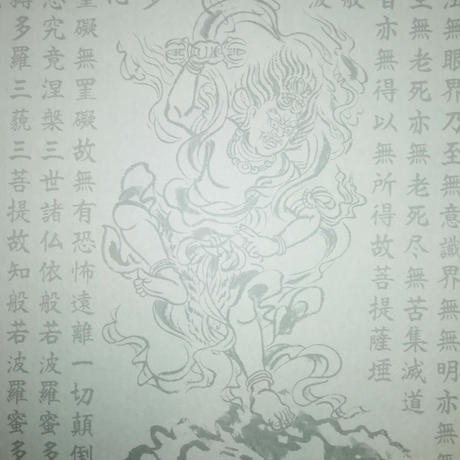 無眼界乃至無意識界無無明亦無
至無老死亦無老死尽無苦集滅道
亦無得以無所得故菩提薩埵
波
多
罣礙無罣礙故無有恐怖遠離一切顛倒
究竟涅槃三世諸仏依般若波羅蜜多
多羅三藐三菩提故知般若波羅蜜多